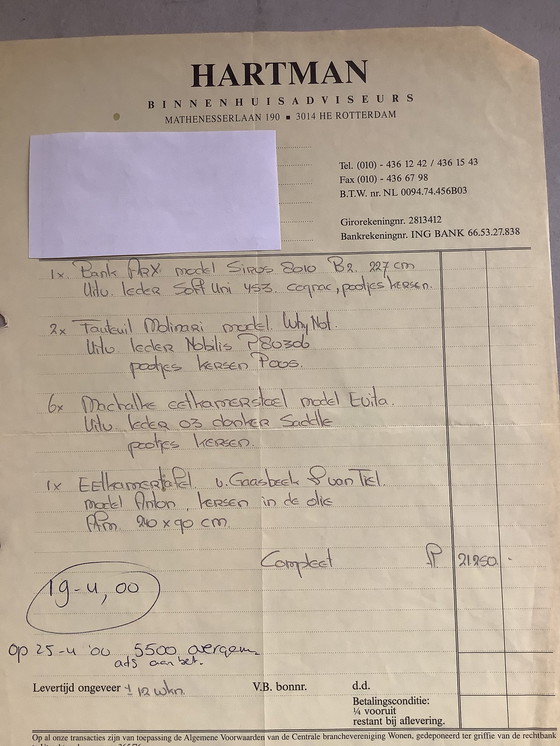 HARTMAN
BINNENHUISADVISEURS
MATHENESSERLAAN 190 ■ 3014 HE ROTTERDAM
Tel. (010) - 436 12 42 / 436 15 43
Fax (010) - 436 67 98
B.T.W. nr. NL 0094.74.456B03
Girorekeningnr. 2813412
Bankrekeningnr. ING BANK 66.53.27.838
1x Bank ARX model Sirus 8010 B2 227 cm
Uitv. leder Soft Uni 453 cognac, pootjes kersen.
2x Fauteuil Molinari model Why Not.
Uitv. leder Nobilis P8030b
pootjes kersen Poos.
6x Machalke eethamerstoel model Evita.
Uitv. leder 03 donker Saddle
pootjes kersen.
1x Eethamertafel v. Gaasbeek & van Tiel.
model Anton, kersen in de olie
Afm. 240 x 90 cm
Compleet 21250 -
19-4,00
op 25-4 '00 5500 overgem.
als aanbet.
Levertijd ongeveer ± 12 wkn. V.B. bonnr. d.d.
Betalingsconditie:
¼ vooruit
restant bij aflevering.
Op al onze transacties zijn van toepassing de Algemene Voorwaarden van de Centrale branchevereniging Wonen, gedeponeerd ter griffie van de rechtbank